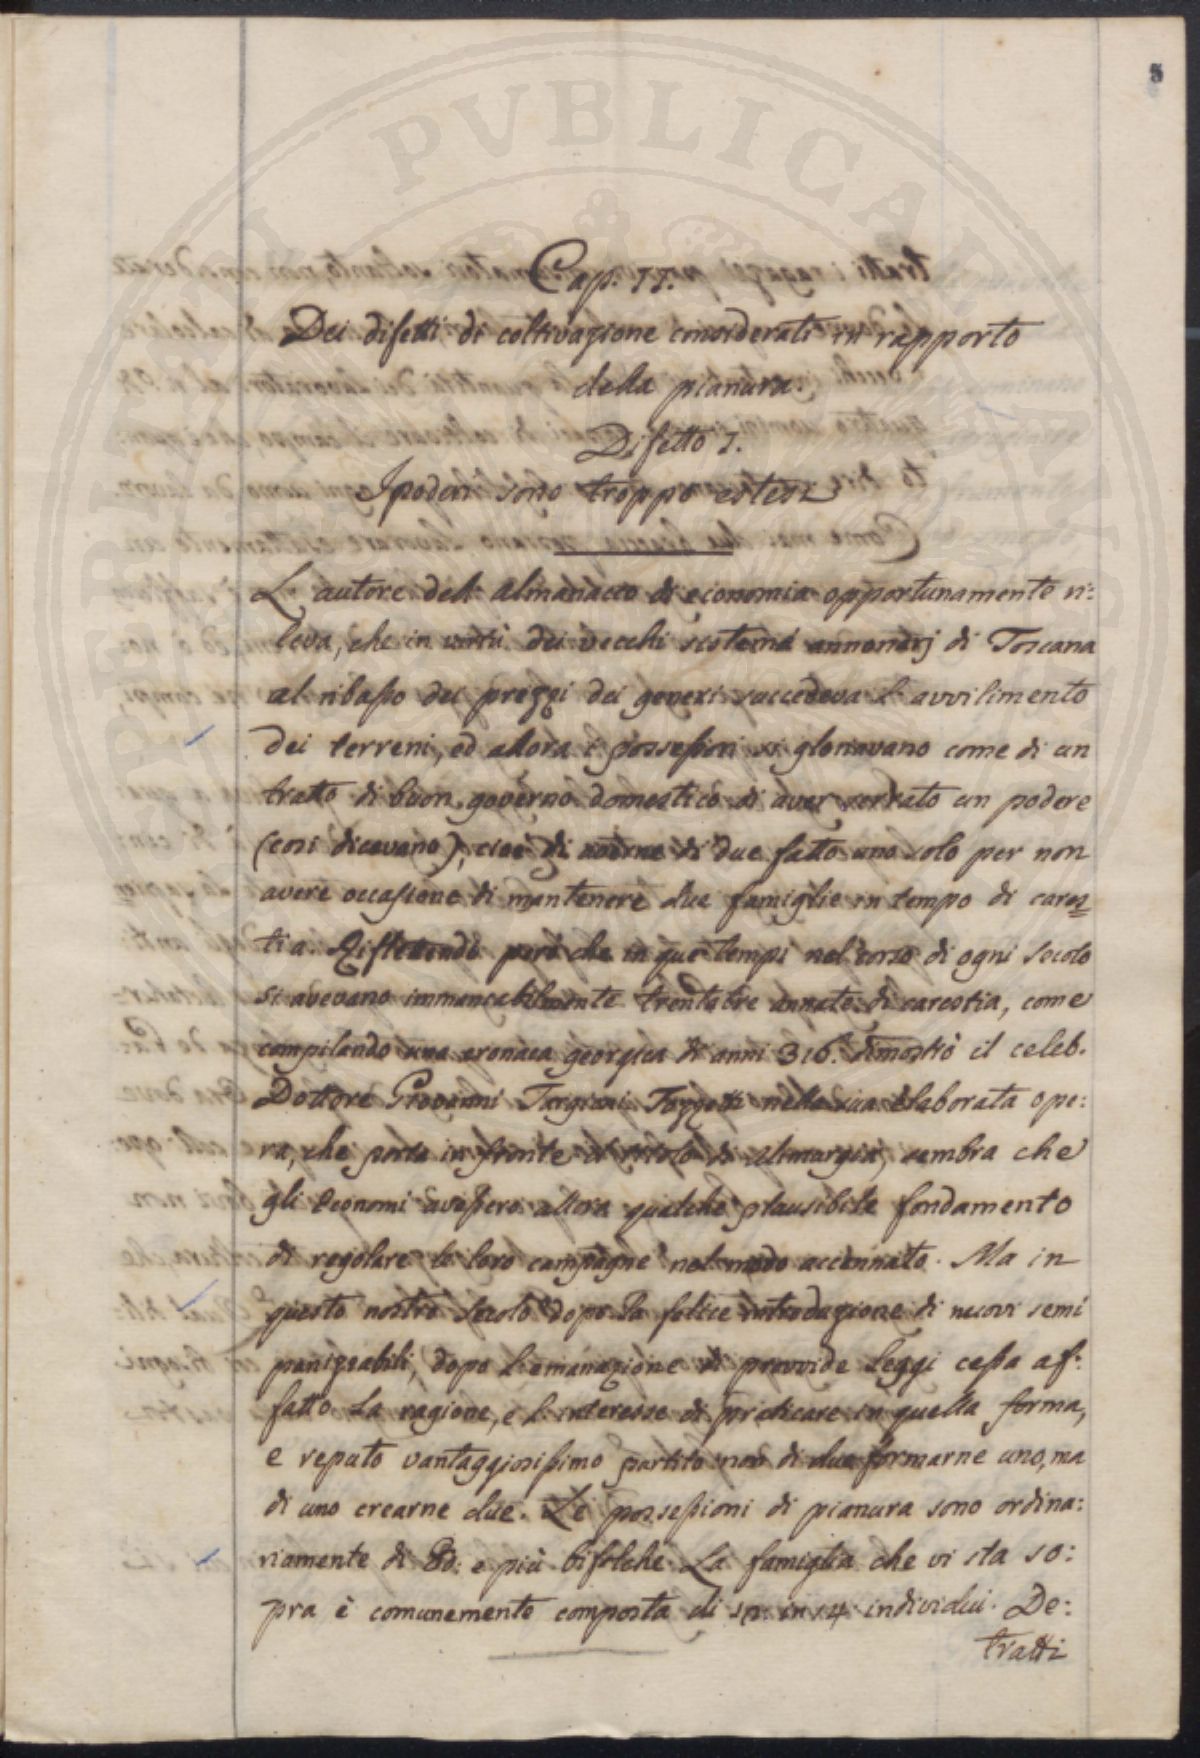 5
Cap. II.
Dei difetti di coltivazione considerati in rapporto
della pianura.
Difetto I.
I poderi sono troppo estesi
L'autore dell'almanacco di economia opportunamente ri:
leva, che in virtù dei vecchi sistemi annonarj di Toscana
al ribasso dei prezzi dei generi succedeva l'avvilimento
dei terreni, ed allora i possessori si gloriavano come di un
tratto di buon governo domestico di aver serrato un podere
(così dicevano), cioè di averne di due fatto uno solo per non
avere occasione di mantenere due famiglie in tempo di cares=
tia. Riflettendo però che in que' tempi nel corso di ogni secolo
si avevano immancabilmente trentatre annate di carestia, come
compilando una cronaca georgica di anni 316. dimostrò il celeb.
Dottore Giovanni Targioni Tozzetti nella sua elaborata ope:
ra, che porta in fronte il titolo di alimurgia, sembra che
gli Economi avessero allora qualche plausibile fondamento
di regolare le loro campagne nel modo accennato. Ma in
questo nostro secolo dopo la felice introduzione di nuovi semi
panizzabili, dopo l'emanazione di provvide Leggi cessa af:
fatto la ragione, e l'interesse di praticare in quella forma,
e reputo vantaggiosissimo partito non di due formarne uno, ma
di uno crearne due. Le possessioni di pianura sono ordina:
riamente di 80. e più bifolche. La famiglia che vi sta so:
pra è comunemente composta di 12. in 14. individui. De:
tratti